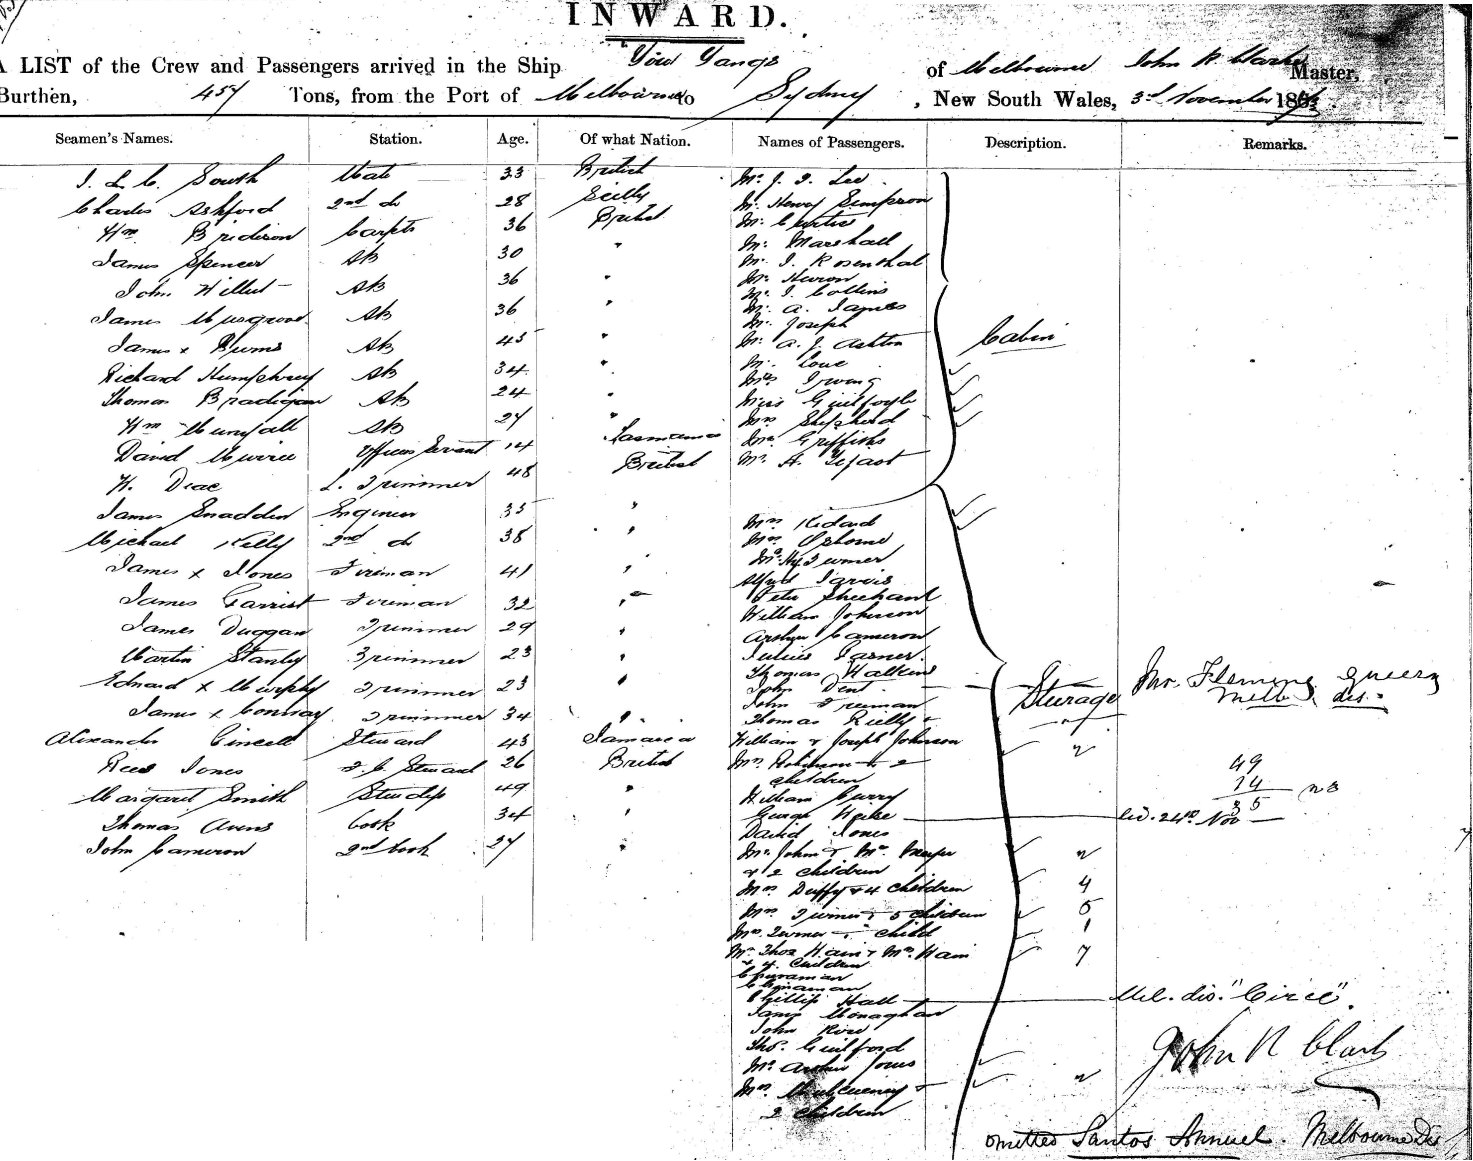 INWARD.
A LIST of the Crew and Passengers arrived in the Ship You Yangs of Melbourne John R Clarke Master,
Burthen, 457 Tons, from the Port of Melbourne to Sydney, New South Wales, 3rd November 186
Seamen's Names. Station. Age. Of what Nation. Names of Passengers. Description. Remarks.
South Mate 33 British
Charles Ashford 2nd do 28 Scilly
Wm Brideson Carptr 36 British
James Spencer AB 30 "
John Willut AB 36 "
James Musgrove AB 36 "
James x Burns AB 45 "
Richard Humphrey AB 34 "
Thomas Bradigan AB 24 "
Wm AB 27 "
David Officers Servant 14 Tasmania
W. L. Trimmer 48 British
James Snadden Engineer 35 "
Michael Kelly 2nd do 38 "
James x Jones Fireman 41 "
James Garrist Fireman 32 "
James Duggan Trimmer 29 "
Martin Stanley Trimmer 23 "
Edward x Murphy Trimmer 23 "
James x Conway Trimmer 34 "
Alexander Steward 43 Jamaica
Rees Jones F. C. Steward 26 British
Margaret Smith Stewdss 49 "
Thomas Avens Cook 34 "
John Cameron 2nd Cook 27 "
Mr J. Lee
Mr Henry Simpson
Mr Curtis
Mr Marshall
Mr I. Rosenthal
Mr Huron
Mr J. Collins
Mr A. James
Mr Joseph
Mr A. J. Ashton
Mr Love
Mrs Irving
Miss Guilfoyle
Mrs Shepherd
Mrs Griffiths
Mr A. Tifaot
Cabin
Mrs Kidard
Mrs Osborne
Mr Hy Turner
Alfred Jarvis
Peter Sheehand
William Johnson
Cameron
Julius Jasner
Thomas Watkins
John Dent
John Freeman
Thomas Reilly +
William + Joseph Johnson 2
Mrs Robinson + 2
children
William Curry
George
David Jones
Mr John + Mrs Meyer 2
+ 2 children
Mrs Duffy + 4 children 4
Mrs Turner + 5 children 5
Mrs Turner + child 1
Mr Thos Hain + Mrs Hain 7
+ 4 children
Chinaman
Chinaman
Phillip Hall
James Monaghan
John Rose
Thos. Guilford
Mr Arthur Jones
Mrs + 2
2 children
Steerage
Jno. Fleming Greery
Melb. dis.
49
14
35
24th Nov
Mel. dis. "Circe".
John R Clark
omitted Santos Annuel. Melbourne Dis